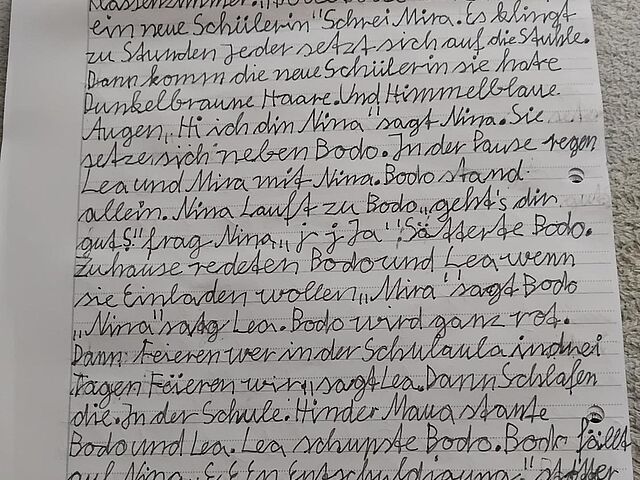 Klassenzimmer.
ein neue Schülerin" Schrei Mira. Es klingt
zu Stunden jeder setzt sich auf die Stühle.
Dann komm die neue Schülerin sie hate
Dunkelbraune Haare. Und Himmelblaue
Augen „Hi ich din Nina" sagt Nina. Sie
setze sich neben Bodo. In der Pause regen
Lea und Mira mit Nina. Bodo stand
allein. Nina Lauft zu Bodo „geht's din
gut?" frag Nina „j j Ja" Bodo.
Zuhause redeten Bodo und Lea wenn
sie Einladen wollen „Mira" sagt Bodo
„Nina" satg Lea. Bodo wird ganz rot.
Dann Feieren wer in der Schulaula in drei
Tagen Feieren wir „sagt Lea. Dann Schlafen
die. In der Schule. Hinder Maua stante
Bodo und Lea. Lea schupste Bodo. Bodo fällt
auf Nina „E E En Entschuldigung."